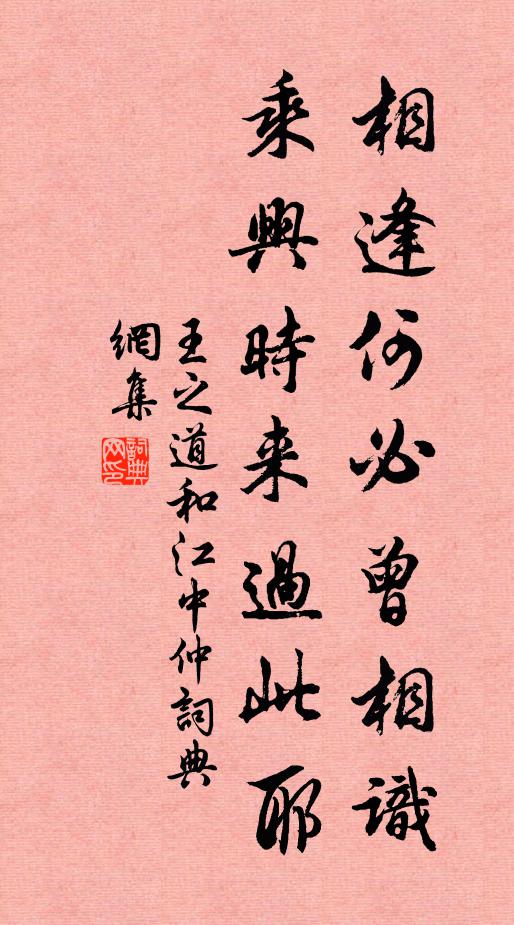 相逢何必曾相識
乘興時来過此耶
王之道和江中仲詞典
網集
詞典
网印